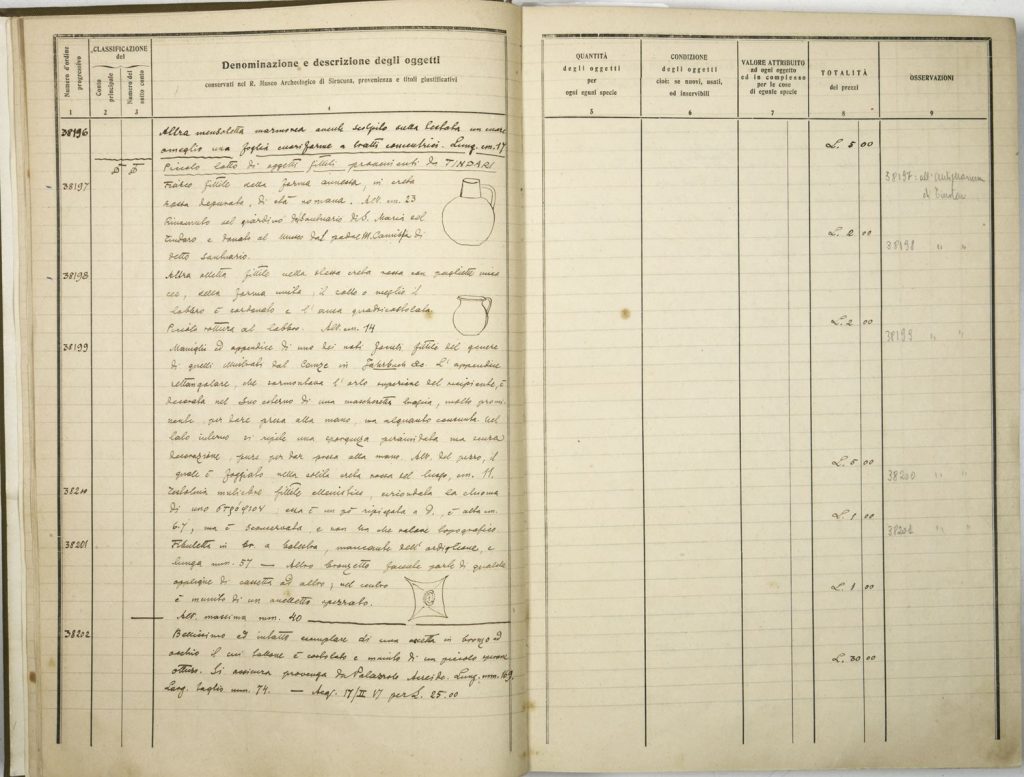 Numero d'ordine progressivo
CLASSIFICAZIONE del
Conto principale
Numero del sotto conto
Denominazione e descrizione degli oggetti
conservati nel R. Museo Archeologico di Siracusa, provenienza e titoli giustificativi
1 2 3 4
38196 Altra mensoletta marmorea anche scolpita sulla testata un cuore
o meglio una foglia cuoriforme a tratti concentrici. Lung. cm. 17
Piccolo lotto di oggetti fittili provenienti da TINDARI
38197 Fiasco fittile della forma annessa, in creta
rossa depurata, di età romana. Alt. cm. 23
Rinvenuto nel giardino del Santuario di S. Maria del
Tindaro e donato al Museo dal padre M. di
detto Santuario.
38198 Altra olletta fittile nella stessa creta rossa con pagliette mica
cee, della forma unita, il collo o meglio il
labbro è cordonato e l'ansa quadricostolata
Piccola rottura al labbro. Alt. cm. 14
38199 Maniglia ed appendice di uno dei noti fittile del genere
di quelli illustrati dal Conze in Jahrbuch &c. L'appendice
rettangolare, che sormontava l'orlo superiore del recipiente, è
decorata nel suo esterno di una mascheretta, molto promi
nente, per dare presa alla mano, ma alquanto consunta. Nel
lato interno si ripete una sporgenza piramidata ma senza
decorazione, pure per dar presa alla mano. Alt. del pezzo, il
quale è foggiato nella solita creta rossa del luogo, cm. 11.
38200 Testolina muliebre fittile ellenistica, circondata la chioma
di uno; essa è un pò ripiegata a D., è alta cm.
6.7, ma è sconservata, e non ha che valore topografico
38201 Fibuletta in br. a balestra, mancante dell'ardiglione, è
lunga mm. 57 — Altro bronzetto facente parte di qualche
applique di cassetta od altro; nel centro
è munito di un anelletto spezzato.
Alt. massima mm. 40
38202 Bellissimo ed intatto esemplare di una ascetta in bronzo ad
occhio il cui tallone è costolato e munito di un piccolo sperone
ottuso. Si assicura provenga da Palazzolo Acreide. Lung. mm. 169.
Larg. taglio mm. 74. — Acq. 17/III VI per L. 25.00
QUANTITÀ
degli oggetti
per
ogni egual specie
5
CONDIZIONE
degli oggetti
cioè: se nuovi, usati,
od inservibili
6
VALORE ATTRIBUITO
ad ogni oggetto
ed in complesso
per le cose
di eguale specie
7
TOTALITÀ
dei prezzi
8
OSSERVAZIONI
9
L. 5 00
38197: all'Antiquarium
di Tindari
L. 2 00
38198 " "
L. 2 00
38199 " "
L. 5 00
38200 " "
L. 1 00
38201 " "
L. 1 00
L. 30 00